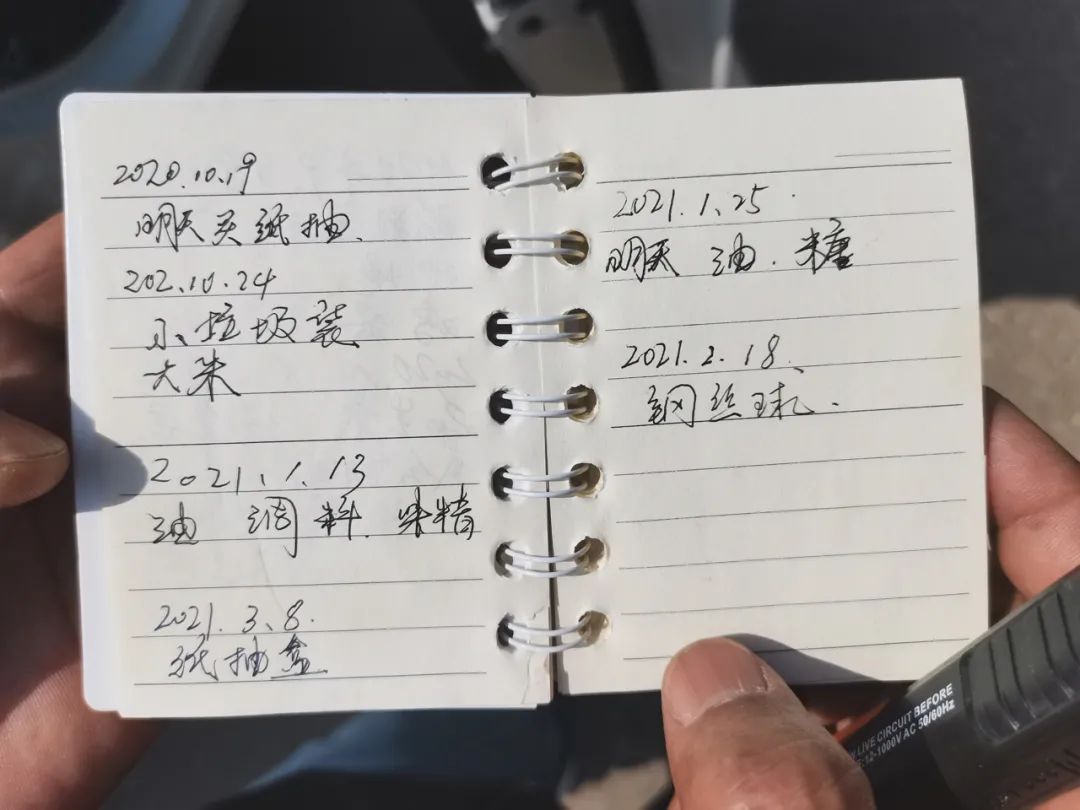 2020.10.19
明天买纸抽.
202.10.24
小垃圾袋
大米
2021.1.13
油 调料.味精
2021.3.8.
纸抽盒
2021.1.25.
明天 油.糖
2021.2.18.
钢丝球.
LIVE CIRCUIT BEFORE
12-1000V AC 50/60Hz